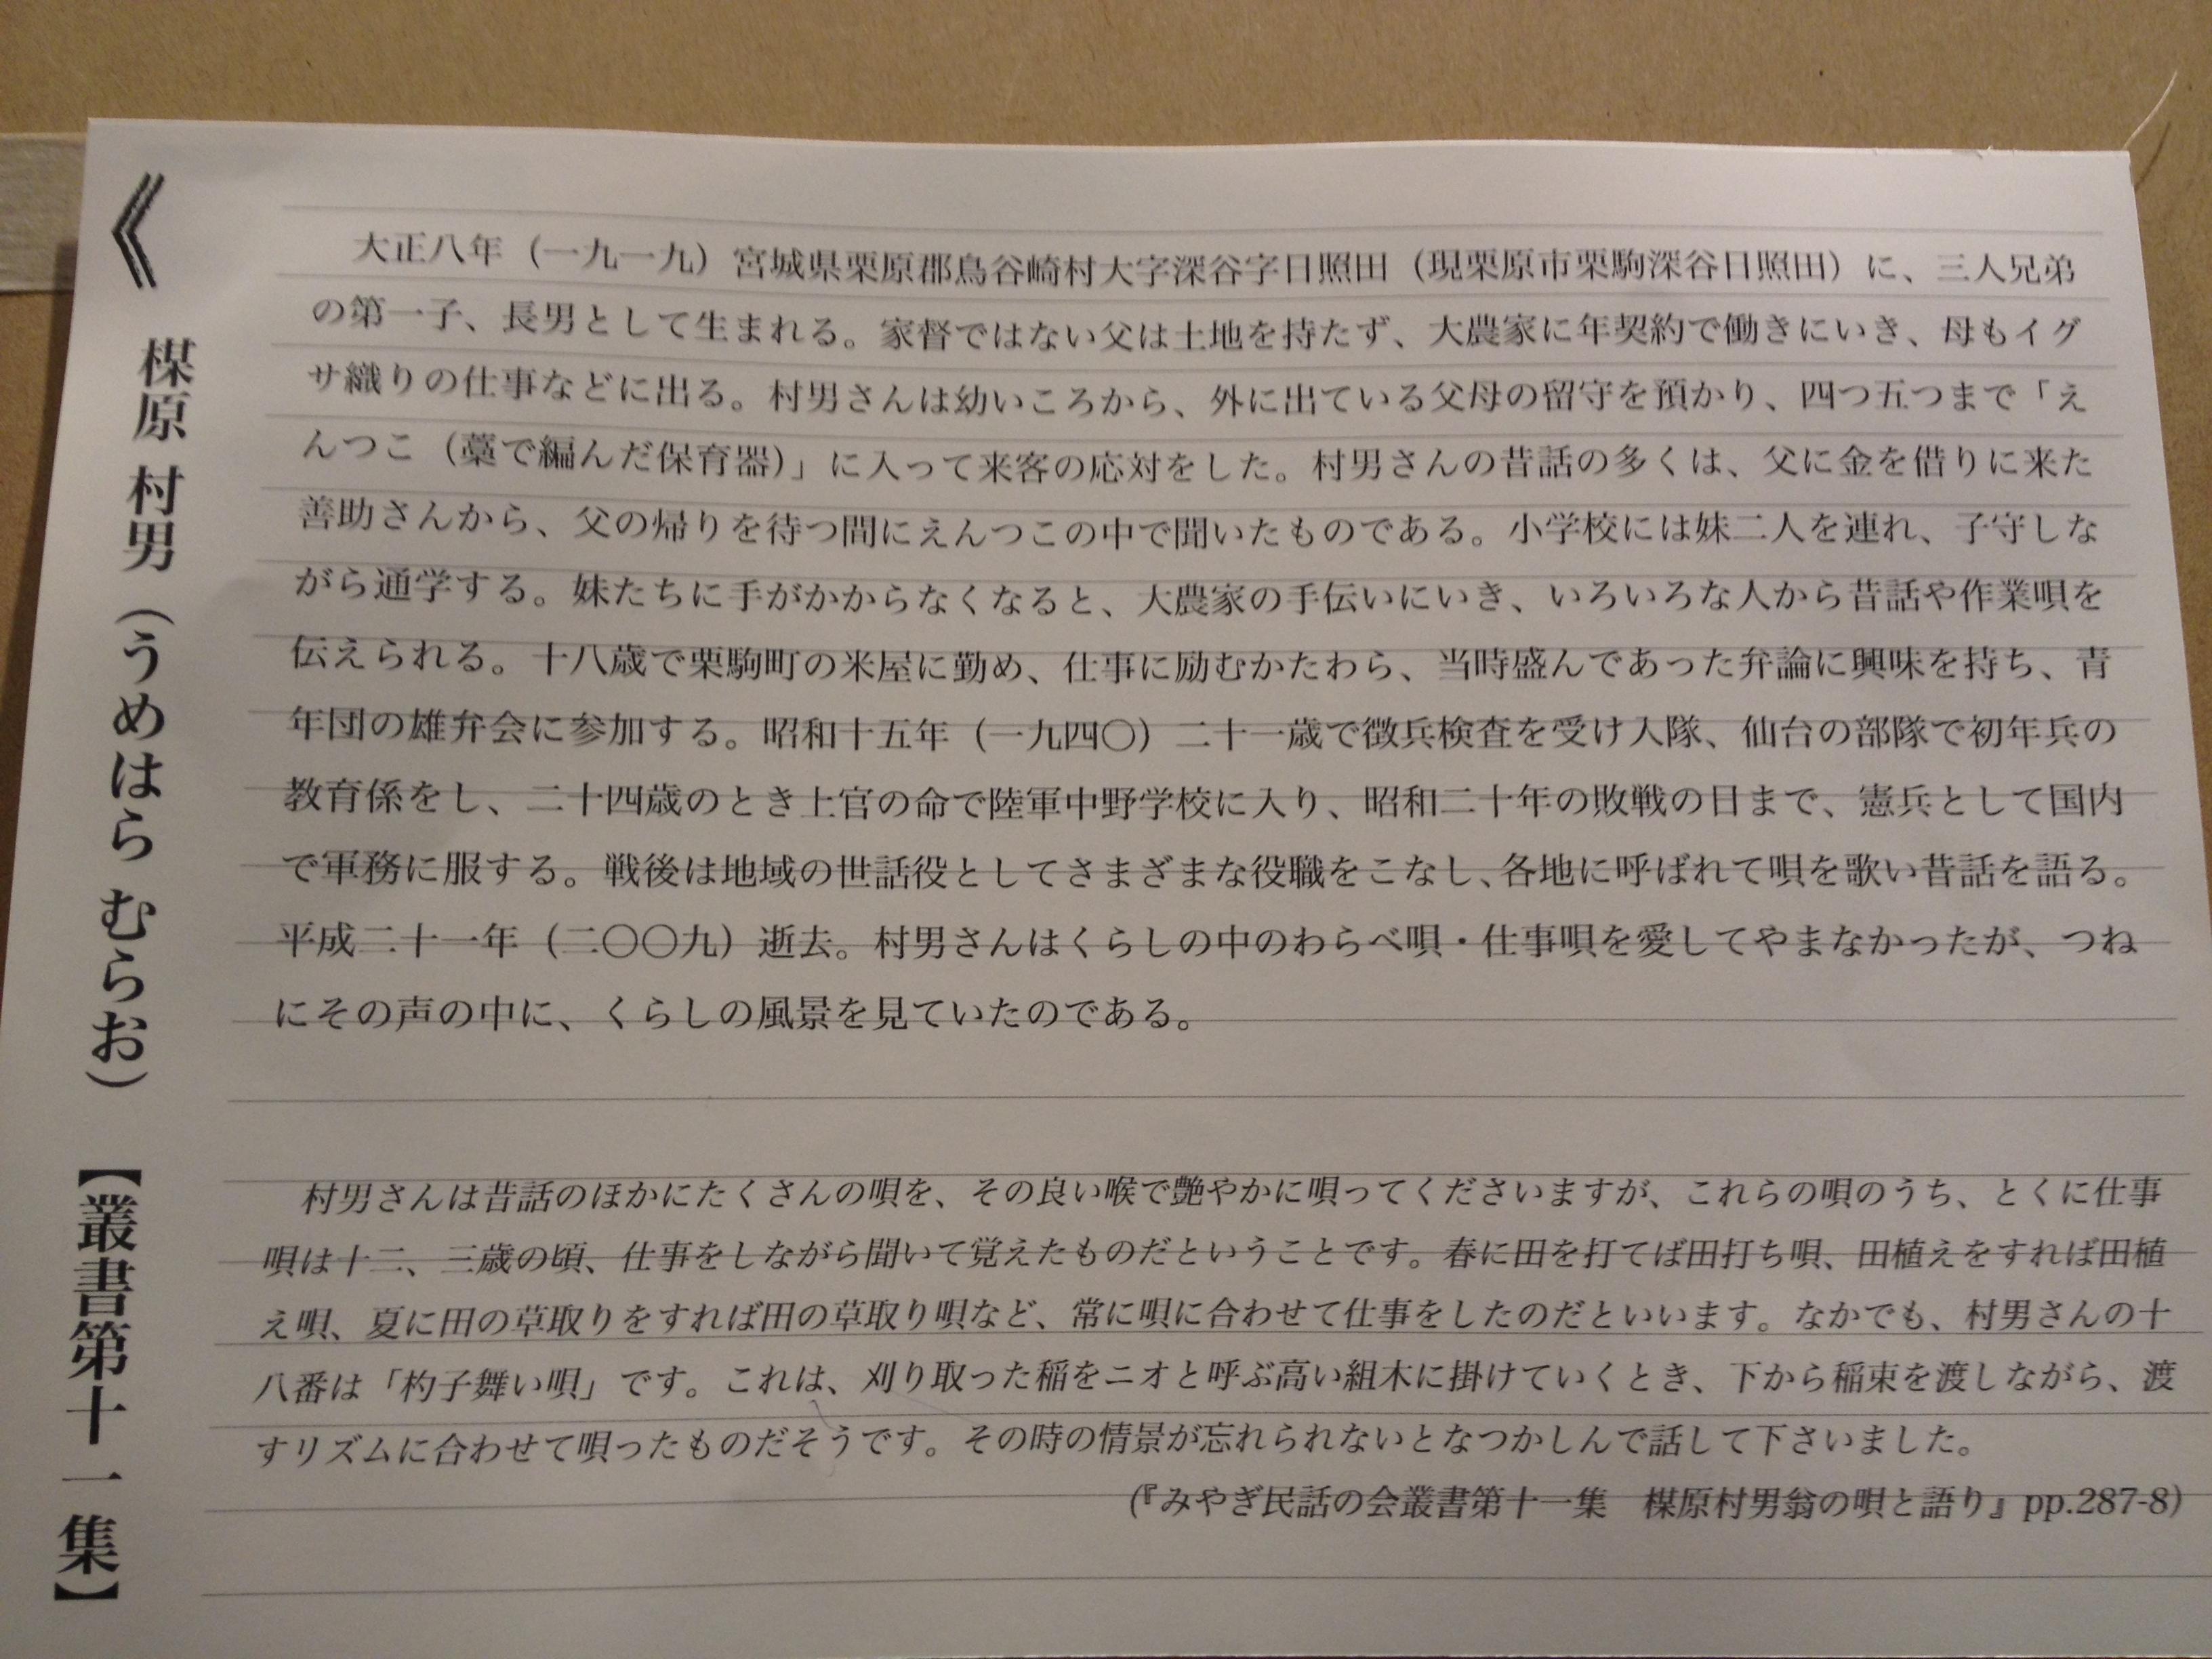 《 楳原 村男（うめはら むらお） 【叢書第十一集】
大正八年（一九一九）宮城県栗原郡鳥谷崎村大字深谷字日照田（現栗原市栗駒深谷日照田）に、三人兄弟
の第一子、長男として生まれる。家督ではない父は土地を持たず、大農家に年契約で働きにいき、母もイグ
サ織りの仕事などに出る。村男さんは幼いころから、外に出ている父母の留守を預かり、四つ五つまで「え
んつこ（藁で編んだ保育器）」に入って来客の応対をした。村男さんの昔話の多くは、父に金を借りに来た
善助さんから、父の帰りを待つ間にえんつこの中で聞いたものである。小学校には妹二人を連れ、子守しな
がら通学する。妹たちに手がかからなくなると、大農家の手伝いにいき、いろいろな人から昔話や作業唄を
伝えられる。十八歳で栗駒町の米屋に勤め、仕事に励むかたわら、当時盛んであった弁論に興味を持ち、青
年団の雄弁会に参加する。昭和十五年（一九四〇）二十一歳で徴兵検査を受け入隊、仙台の部隊で初年兵の
教育係をし、二十四歳のとき上官の命で陸軍中野学校に入り、昭和二十年の敗戦の日まで、憲兵として国内
で軍務に服する。戦後は地域の世話役としてさまざまな役職をこなし、各地に呼ばれて唄を歌い昔話を語る。
平成二十一年（二〇〇九）逝去。村男さんはくらしの中のわらべ唄・仕事唄を愛してやまなかったが、つね
にその声の中に、くらしの風景を見ていたのである。
村男さんは昔話のほかにたくさんの唄を、その良い喉で艶やかに唄ってくださいますが、これらの唄のうち、とくに仕事
唄は十二、三歳の頃、仕事をしながら聞いて覚えたものだということです。春に田を打てば田打ち唄、田植えをすれば田植
え唄、夏に田の草取りをすれば田の草取り唄など、常に唄に合わせて仕事をしたのだといいます。なかでも、村男さんの十
八番は「杓子舞い唄」です。これは、刈り取った稲をニオと呼ぶ高い組木に掛けていくとき、下から稲束を渡しながら、渡
すリズムに合わせて唄ったものだそうです。その時の情景が忘れられないとなつかしんで話して下さいました。
（『みやぎ民話の会叢書第十一集　楳原村男翁の唄と語り』pp.287-8）